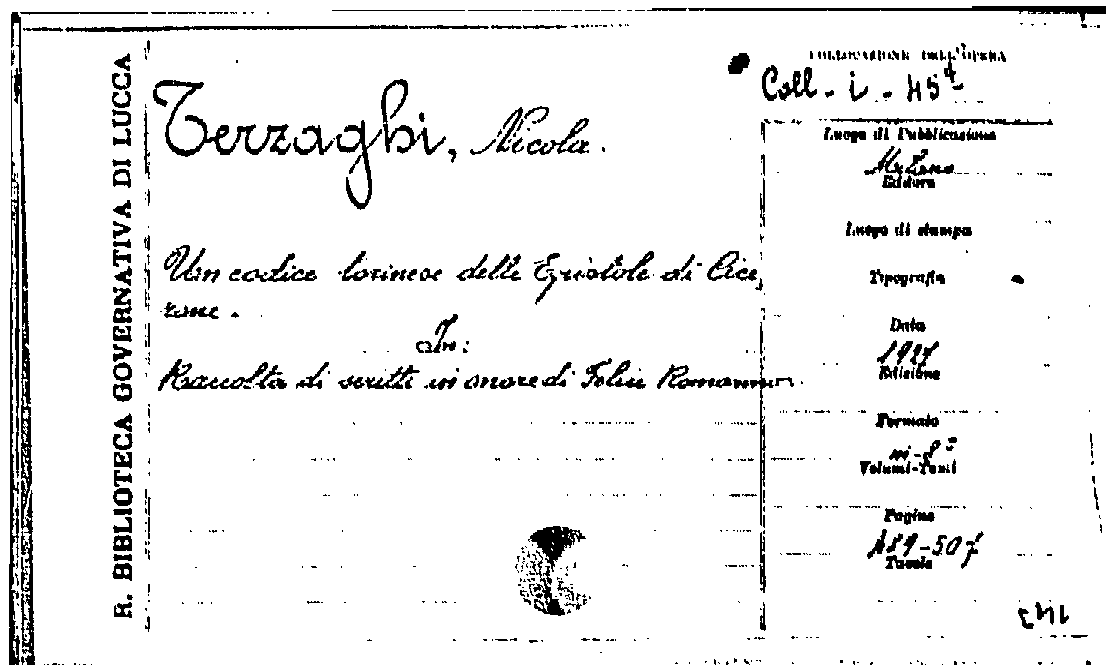 R. BIBLIOTECA GOVERNATIVA DI LUCCA
Terzaghi, Nicola.
Un codice torinese delle Epistole di Cice
rone.
In:
Raccolta di scritti in onore di Felice Ramorino.
COLLOCAZIONE DELL'OPERA
Coll - i - 45
Luogo di Pubblicazione
Milano
Editore
Luogo di stampa
Tipografia
Data
1927
Edizione
Formato
in-8°
Volumi-Tomi
Pagine
489-507
Tavole